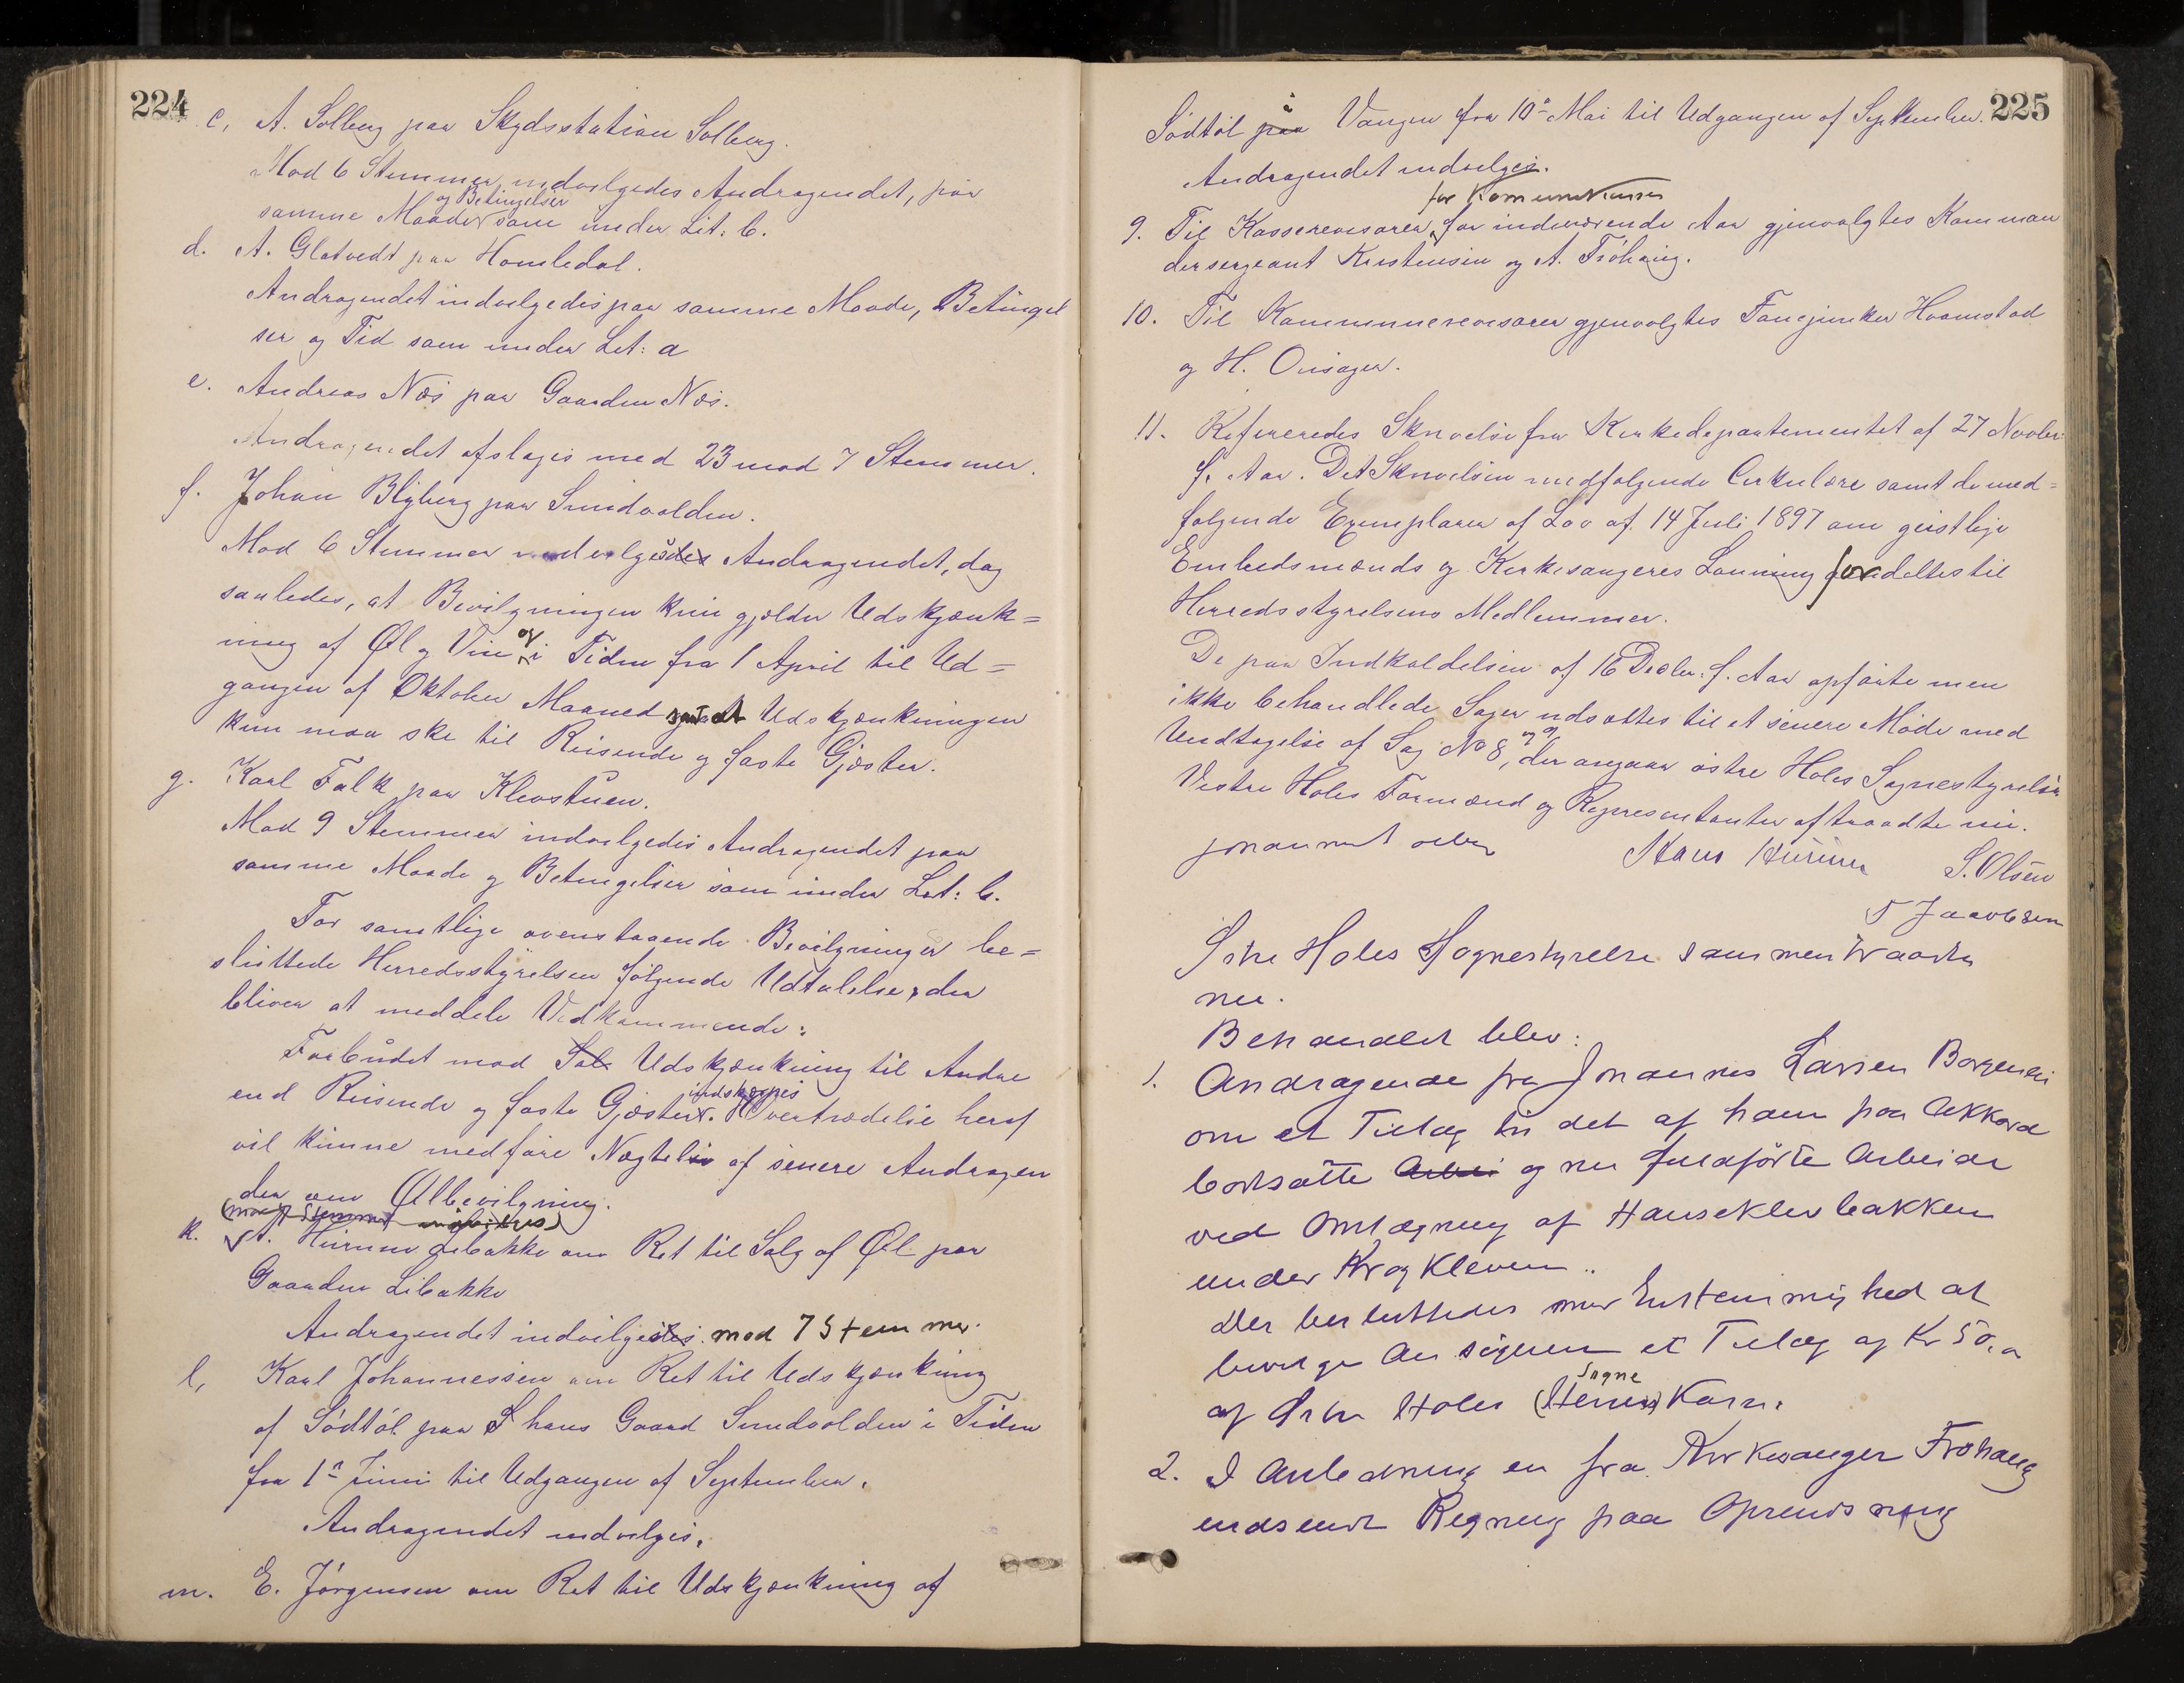 224
c, A. Solberg paa Skydsstation Solberg.
Mod 6 Stemmer indvilgedes Andragendet, paa
og Betingelser
samme Maade som under Lit: b.
d. A. Glatvedt paa Homledal.
Andragendet indvilgedes paa samme Maade, Betingel
ser og Tid som under Lit: a
e. Andreas Næs paa Gaarden Næs.
Andragendet afslages med 23 mod 7 Stemmer.
f. Johan Blyberg paa Sundvolden.
Mod 6 Stemmer indvilgedes Andragendet, dog
saaledes, at Bevilgningen kun gjælder Udskjænk=
ning af Øl og Vin og i Tiden fra 1 April til Ud=
gangen af Oktober Maaned samt at Udskjænkningen
kun maa ske til Reisende og faste Gjæster.
g. Karl Falk paa Klevstuen.
Mod 9 Stemmer indvilgedes Andragendet paa
samme Maade og Betingelser som under Lit: b.
For samtlige ovenstaaende Bevilgninger be=
sluttede Herredsstyrelsen følgende Udtalelse, der
bliver at meddele Vedkommende:
Forbudet mod Sal Udskjænkning til Andre
indskjærpes
end Reisende og faste Gjæster. Overtrædelse heraf
vil kunne medføre Nægtelse af senere Andragen
der om Ølbevilgning.
(mod 7 Stemmer indvilges)
k. A. Hurum Libakke om Ret til Salg af Øl paa
Gaarden Libakke
Andragendet indvilgedes mod 7 Stemmer.
l, Karl Johannessen om Ret til Udskjænkning
af Sødtøl paa S hans Gaard Sundvolden i Tiden
fra 1ste Juni til Udgangen af September.
Andragendet indvilges.
m. E. Jørgensen om Ret til Udskjænkning af
225
Sødtøl paa i Vangen fra 10de Mai til Udgangen af September.
Andragendet indvilges.
for Kommunekassen
9. Til Kasserevisorer for indeværende Aar gjenvalgtes Komman
dersergeant Kristensen og A. Frøhaug.
10. Til Kommunerevisorer gjenvalgtes Fanejunker Haamstad
og H. Onsager.
11. Refereredes Skrivelse fra Kirkedepartementet af 27 Novbr.
f. Aar. Det Skrivelsen medfølgende Cirkulære samt de med=
følgende Exemplarer af Lov af 14 Juli 1897 om geistlige
Embedsmænds og Kirkesangeres Lønning fordeltes til
Herredsstyrelsens Medlemmer.
De paa Indkaldelsen af 16 Decbr. f. Aar opførte men
ikke behandlede Sager udsættes til et senere Møde med
og 9
Undtagelse af Sag No 8, der angaar østre Holes Sognestyrelse
Vestre Holes Formænd og Repræsentanter aftraadte nu.
Hans Hurum S. Olsen
T Jacobsen
Østre Holes Sognestyrelse sammentraadte
nu.
Behandlet blev:
1. Andragende fra Johannes Larsen Borgenei
om et Tillæg til det af ham paa Akkord
bortsatte Arbei og nu fuldførte Arbeide
ved Omlægning af Hauseklevbakken
under Krogkleven.
Der besluttedes med Enstemmighed at
bevilge Ansøgeren et Tillæg af Kr 50,00
Sogne
af østre Holes (Herreds) Kasse.
2. I Anledning en fra Kirkesanger Frøhaug
indsendt Regning paa Oprensning